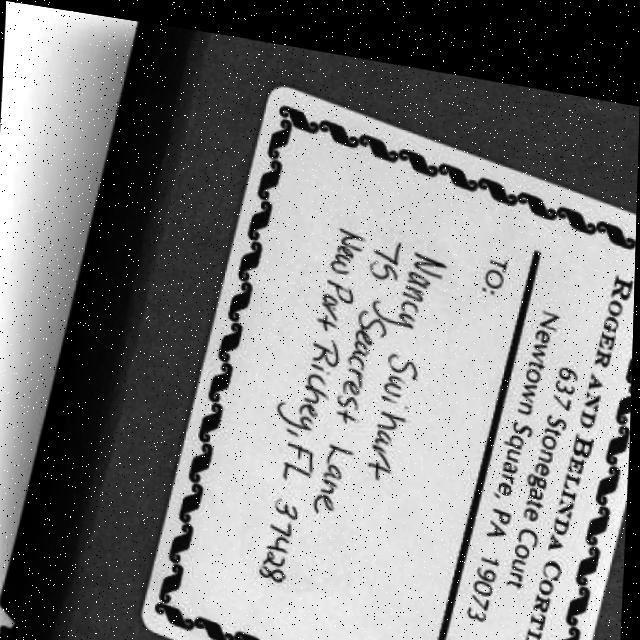 ROGER AND BELINDA CORTI
637 Stonegate Court
Newtown Square, PA 19073
TO:
Nancy Swihart
75 Seacrest Lane
New Port Richey, FL 37428